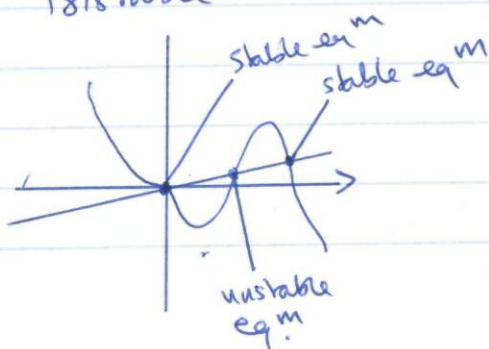 stable eqᵐ
stable eqᵐ
unstable
eqᵐ.